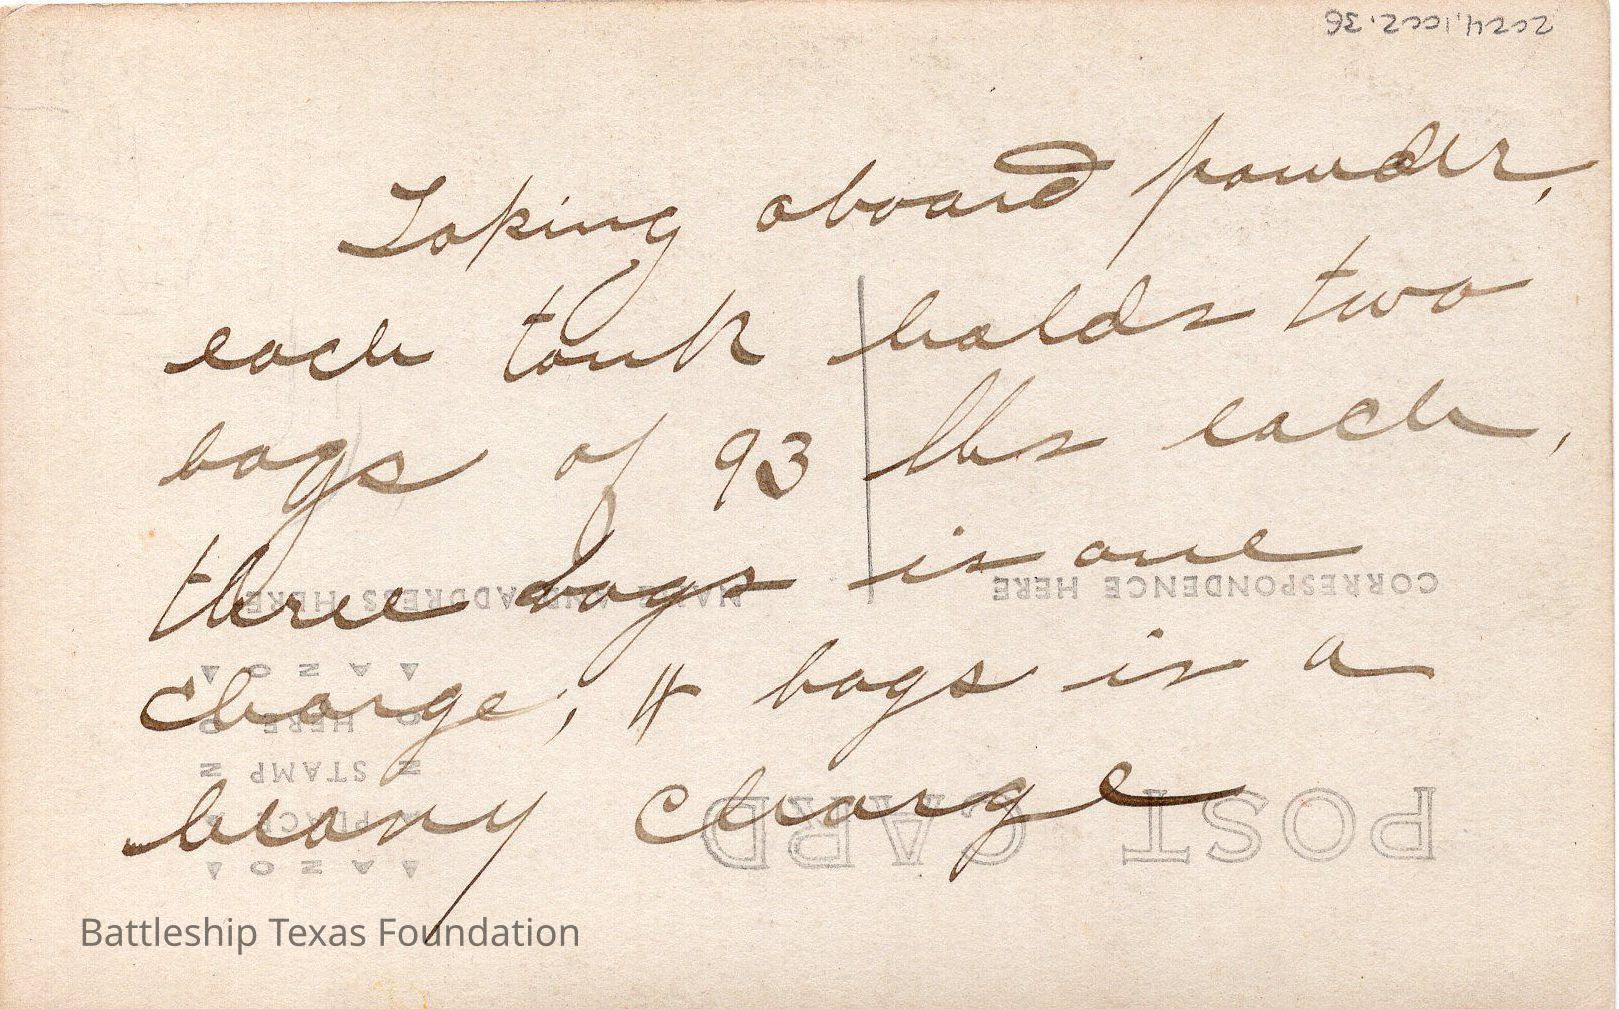 2024.1002.36
Taking aboard powder,
each tank holds two
bags of 93 lbs each,
three bags is one
charge, 4 bags is a
heavy charge
CORRESPONDENCE HERE
NAME AND ADDRESS HERE
POST CARD
AZO
PLACE
STAMP
HERE
AZO
Battleship Texas Foundation